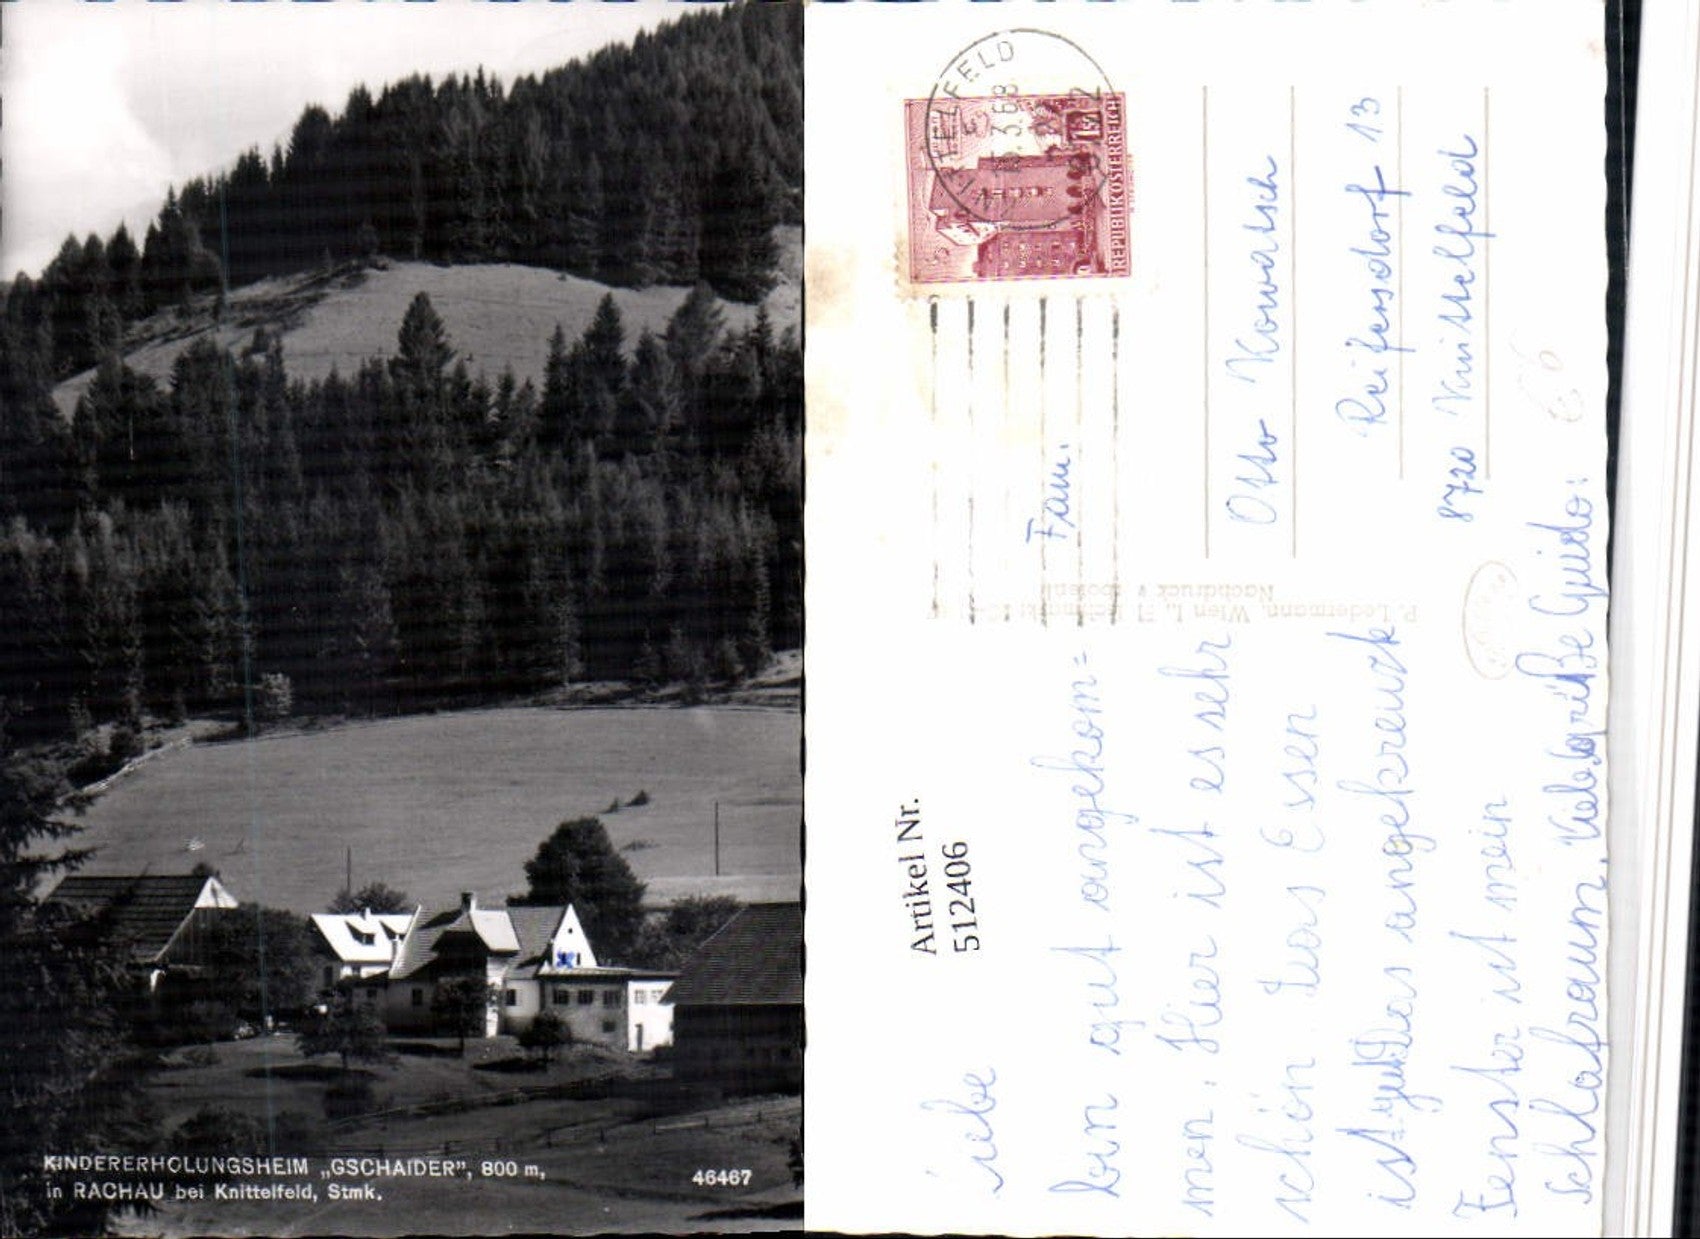 KINDERERHOLUNGSHEIM „GSCHAIDER", 800 m,
in RACHAU bei Knittelfeld, Stmk.
46467
KNITTELFELD
3.68
8722
1S
REPUBLIK ÖSTERREICH
Artikel Nr.
512406
Fam.
Otto Kowatsch
Reifersdorf 13
8720 Knittelfeld
P. Ledermann, Wien I.,
Nachdruck verboten
Liebe
bin gut angekom=
men. Hier ist es sehr
schön. Das Essen
ist gut. Das angekreuzte
Fenster ist mein
Schlafraum. Viele Grüße Guido!